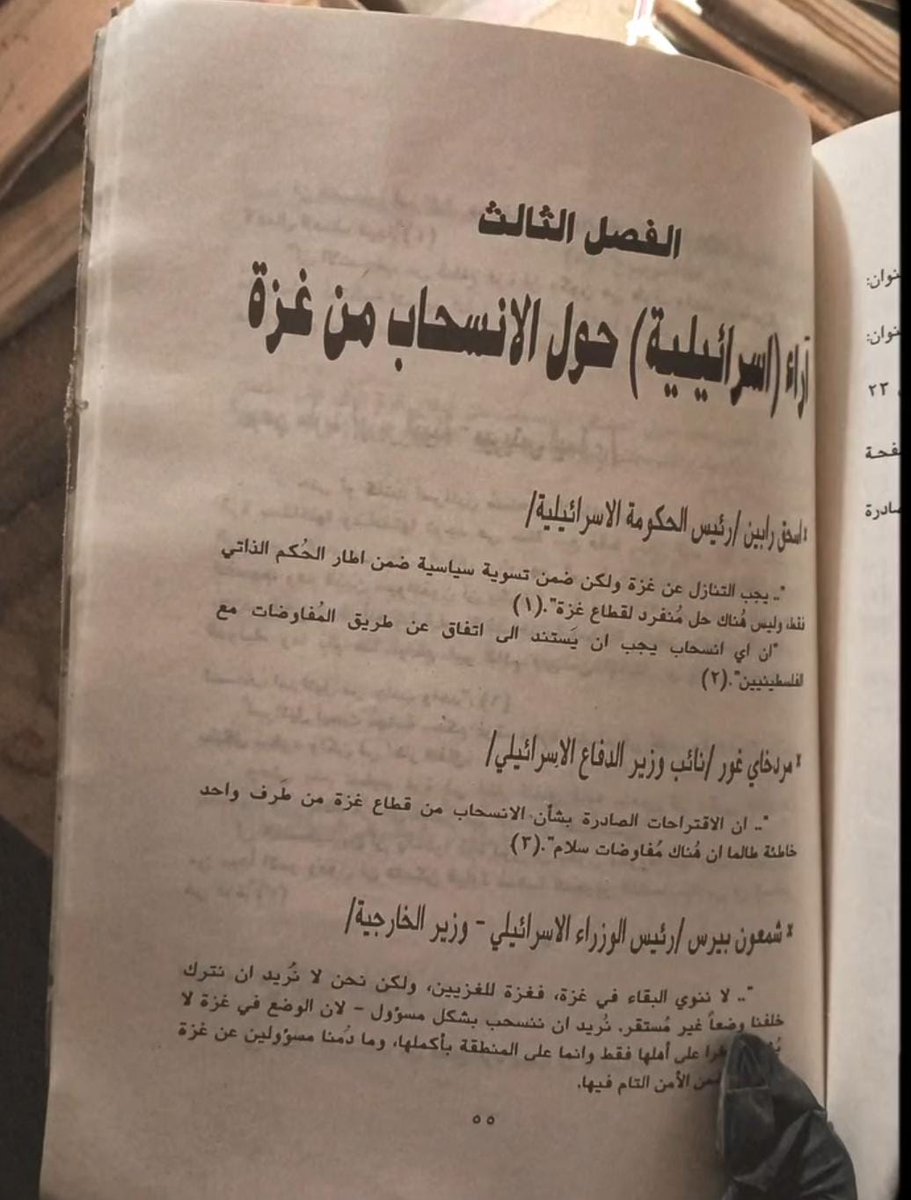 الفصل الثالث
آراء (اسرائيلية) حول الانسحاب من غزة
* اسحق رابين /رئيس الحكومة الاسرائيلية/
".. يجب التنازل عن غزة ولكن ضمن تسوية سياسية ضمن اطار الحُكم الذاتي
فقط، وليس هُناك حل مُنفرد لقطاع غزة".(١)
"ان اي انسحاب يجب ان يَستند الى اتفاق عن طريق المُفاوضات مع
الفلسطينيين".(٢)
* مردخاي غور /نائب وزير الدفاع الاسرائيلي/
".. ان الاقتراحات الصادرة بشأن الانسحاب من قطاع غزة من طَرف واحد
خاطئة طالما ان هُناك مُفاوضات سلام".(٣)
* شمعون بيرس /رئيس الوزراء الاسرائيلي - وزير الخارجية/
".. لا ننوي البقاء في غزة، فغزة للغزيين، ولكن نحن لا نُريد ان نترك
خلفنا وضعاً غير مُستقر. نُريد ان ننسحب بشكل مسؤول - لان الوضع في غزة لا
على أهلها فقط وانما على المنطقة بأكملها، وما دُمنا مسؤولين عن غزة
الأمن التام فيها.
٥٥
نوان:
نوان:
٢٣
فحة
صادرة